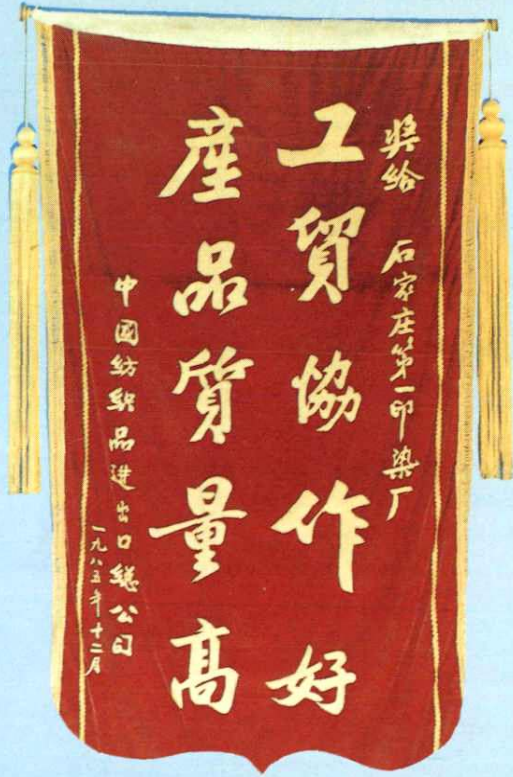 奖给 石家庄第一印染厂
工貿協作好
産品質量高
中國紡織品進出口總公司
一九八五年十二月